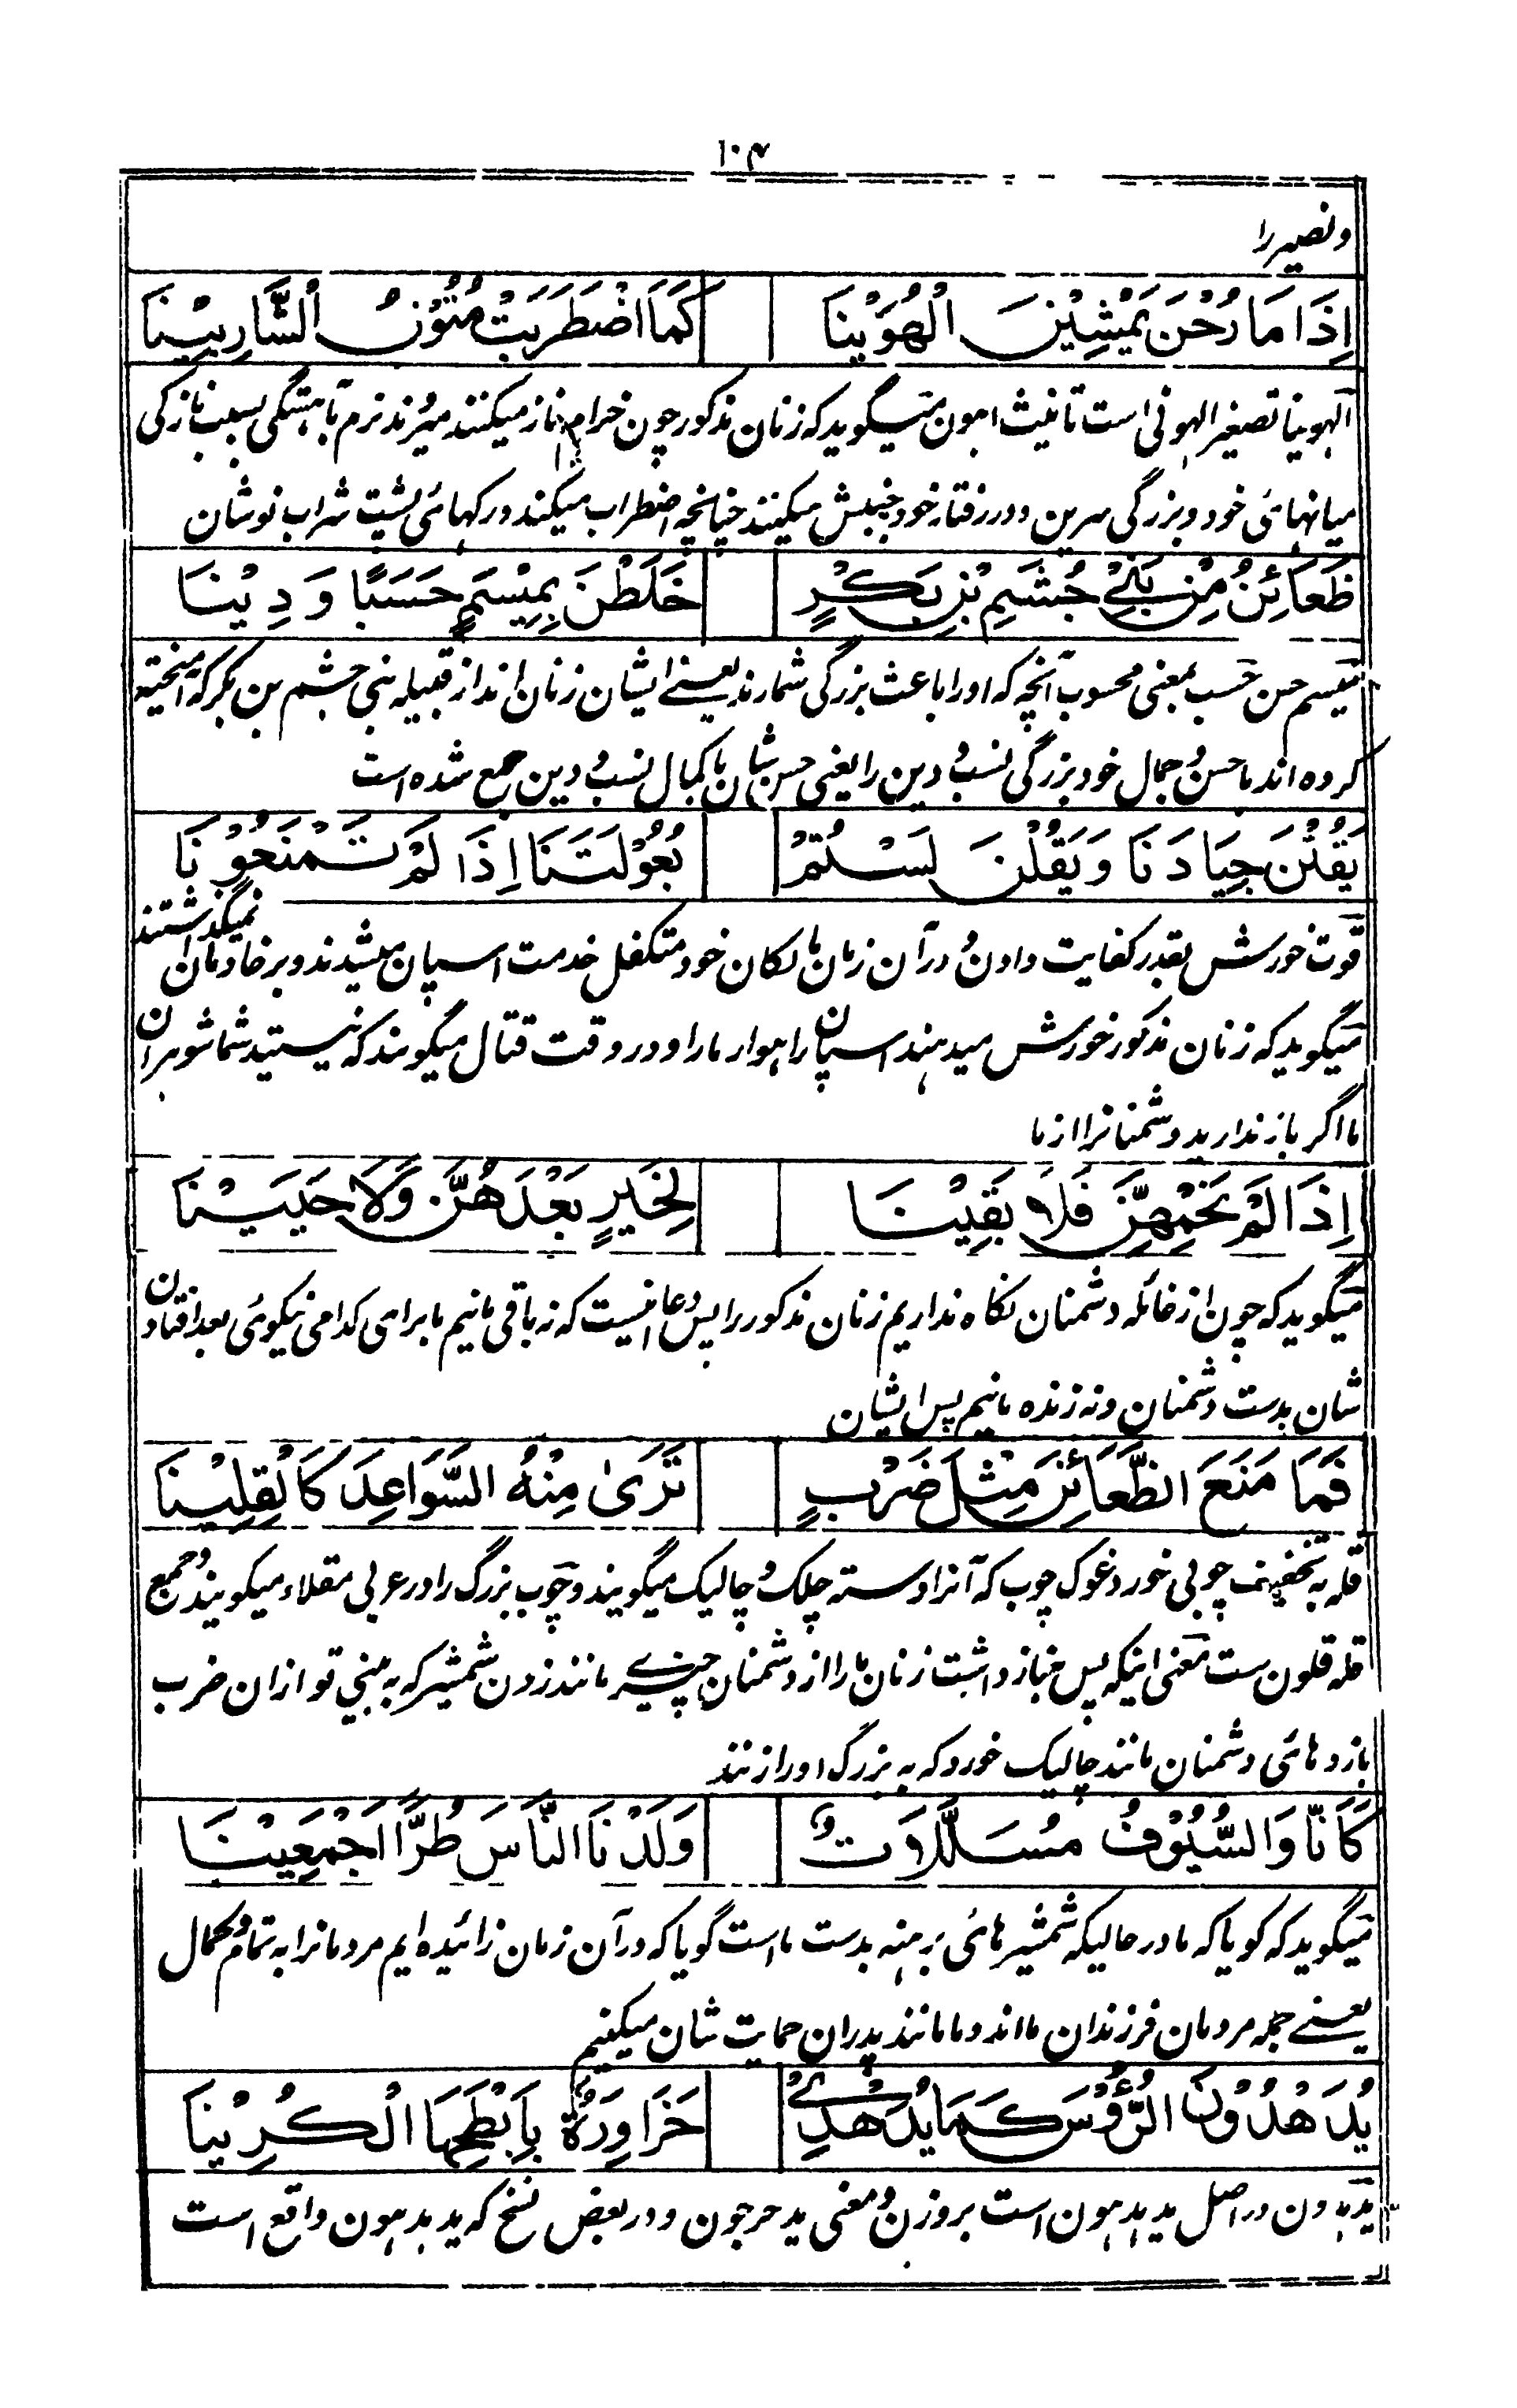 ۱۰۴
ونصیر را
اِذَا مَا رُحْنَ يَمْشِيْنَ الْهُوَيْنَا كَمَا اضْطَرَبَتْ مُتُوْنُ الشَّارِبِيْنَا
الهوینا تصغیر الهونی است تانیث اهون میگوید که زنان مذکور چون خرام ناز میکنند میروند نرم بآهستگی بسبب نازکی
میانهای خود و بزرگی سرین و در رفتار خود جنبش میکنند چنانچه اضطراب میکند در کهای پشت شراب نوشان
ظَعَائِنُ مِنْ بَنِيْ جُشَمِ بْنِ بَكْرٍ خَلَطْنَ بِمِيْسَمٍ حَسَبًا وَ دِيْنَا
میسم حسن حسب بمعنی محسوب آنچه که او را باعث بزرگی شمارند یعنی ایشان زنان اند از قبیله بنی جشم بن بکر که آمیخته
کرده اند با حسن و جمال خود بزرگی نسب و دین را یعنی حسن شان با کمال نسب و دین جمع شده است
يَقُتْنَ جِيَادَنَا وَيَقُلْنَ لَسْتُمْ بُعُوْلَتَنَا اِذَا لَمْ تَمْنَعُوْنَا
قوت خورش بقدر کفایت دادن و در آن زمان مالکان خود متکفل خدمت اسپان میشدند و بر خادمان نمیگذاشتند
میگوید که زنان مذکور خورش میدهند اسپان راهوار ما را و در وقت قتال میگویند که نیستید شما شوهران
ما اگر باز ندارید دشمنانرا از ما
اِذَا لَمْ نَحْمِهِنَّ فَلَا بَقِيْنَا لِخَيْرٍ بَعْدَهُنَّ وَلَا حَيِيْنَا
میگوید که چون از غائله دشمنان نگاه نداریم زنان مذکور را پس دعا اینست که نه باقی مانیم ما برای کدامی نیکوئی بعد افتادن
شان بدست دشمنان و نه زنده مانیم پس ایشان
فَمَا مَنَعَ الظَّعَائِنَ مِثْلُ ضَرْبٍ تَرَىٰ مِنْهُ السَّوَاعِدَ كَالْقِلِيْنَا
قله به تخفیف چوبی خورد غوک چوب که آنرا دسته چلک و چالیک میگویند و چوب بزرگ را در عربی مقلاء میگویند و جمع
قله قلون ست معنی اینکه پس نباز داشت زنان ما را از دشمنان چیزی مانند زدن شمشیر که به بینی تو ازان ضرب
بازوهای دشمنان مانند چالیک خورد که به بزرگ او را زنند
كَاَنَّا وَالسُّيُوْفُ مُسَلَّلَاتٌ وَلَدْنَا النَّاسَ طُرًّا اَجْمَعِيْنَا
میگوید که گویا که ما در حالیکه شمشیرهای برهنه بدست ما است گویا که در آن زمان زائیده ایم مردمانرا به تمام و کمال
یعنی جمله مردمان فرزندان ما اند و ما مانند پدران حمایت شان میکنیم
يُدَهْدُوْنَ الرُّؤُسَ كَمَا يُدَهْدِيْ حَزَاوِرَةٌ بِاَبْطَحِهَا الْكُرِيْنَا
یدهدون در اصل یدهدهون است بروزن و معنی یدحرجون و در بعض نسخ که یدهدهون واقع است